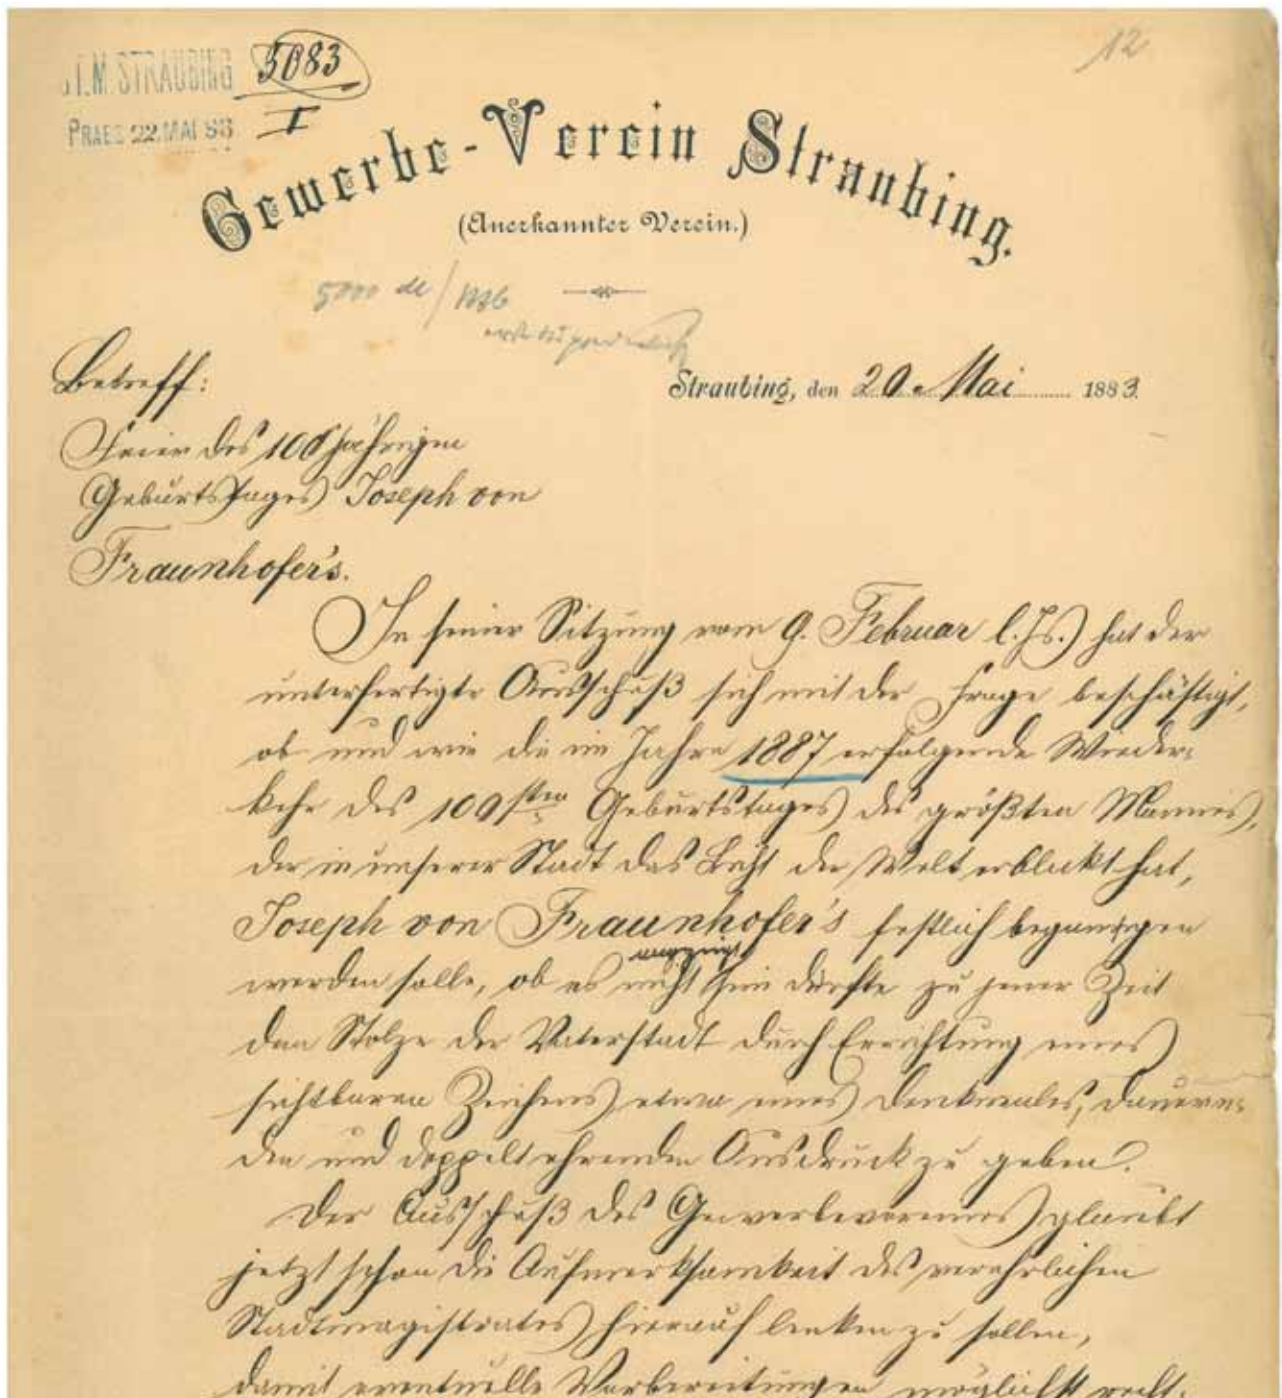 ST.M. STRAUBING 5083
PRAES 22. MAI 83 I
12
Gewerbe-Verein Straubing.
(Anerkannter Verein.)
Straubing, den 20. Mai 1883.
Betreff:
Feier des 100 jährigen
Geburtstages Joseph von
Fraunhofer's.
In seiner Sitzung vom 9. Februar l. Js. hat der
unterfertigte Ausschuß sich mit der Frage beschäftigt,
ob und wie die im Jahre 1887 erfolgende Wieder-
kehr des 100sten Geburtstages des größten Mannes,
der in unserer Stadt das Licht der Welt erblickt hat,
Joseph von Fraunhofer's festlich begangen
werden solle, ob es nicht angezeigt sein dürfte zu jener Zeit
dem Stolze der Vaterstadt durch Errichtung eines
sichtbaren Zeichens etwa eines Denkmales, dauern-
den und doppelt ehrenden Ausdruck zu geben.
Der Ausschuß des Gewerbevereines glaubt
jetzt schon die Aufmerksamkeit des verehrlichen
Stadtmagistrates hierauf lenken zu sollen,
damit eventuelle Vorbereitungen möglichst recht